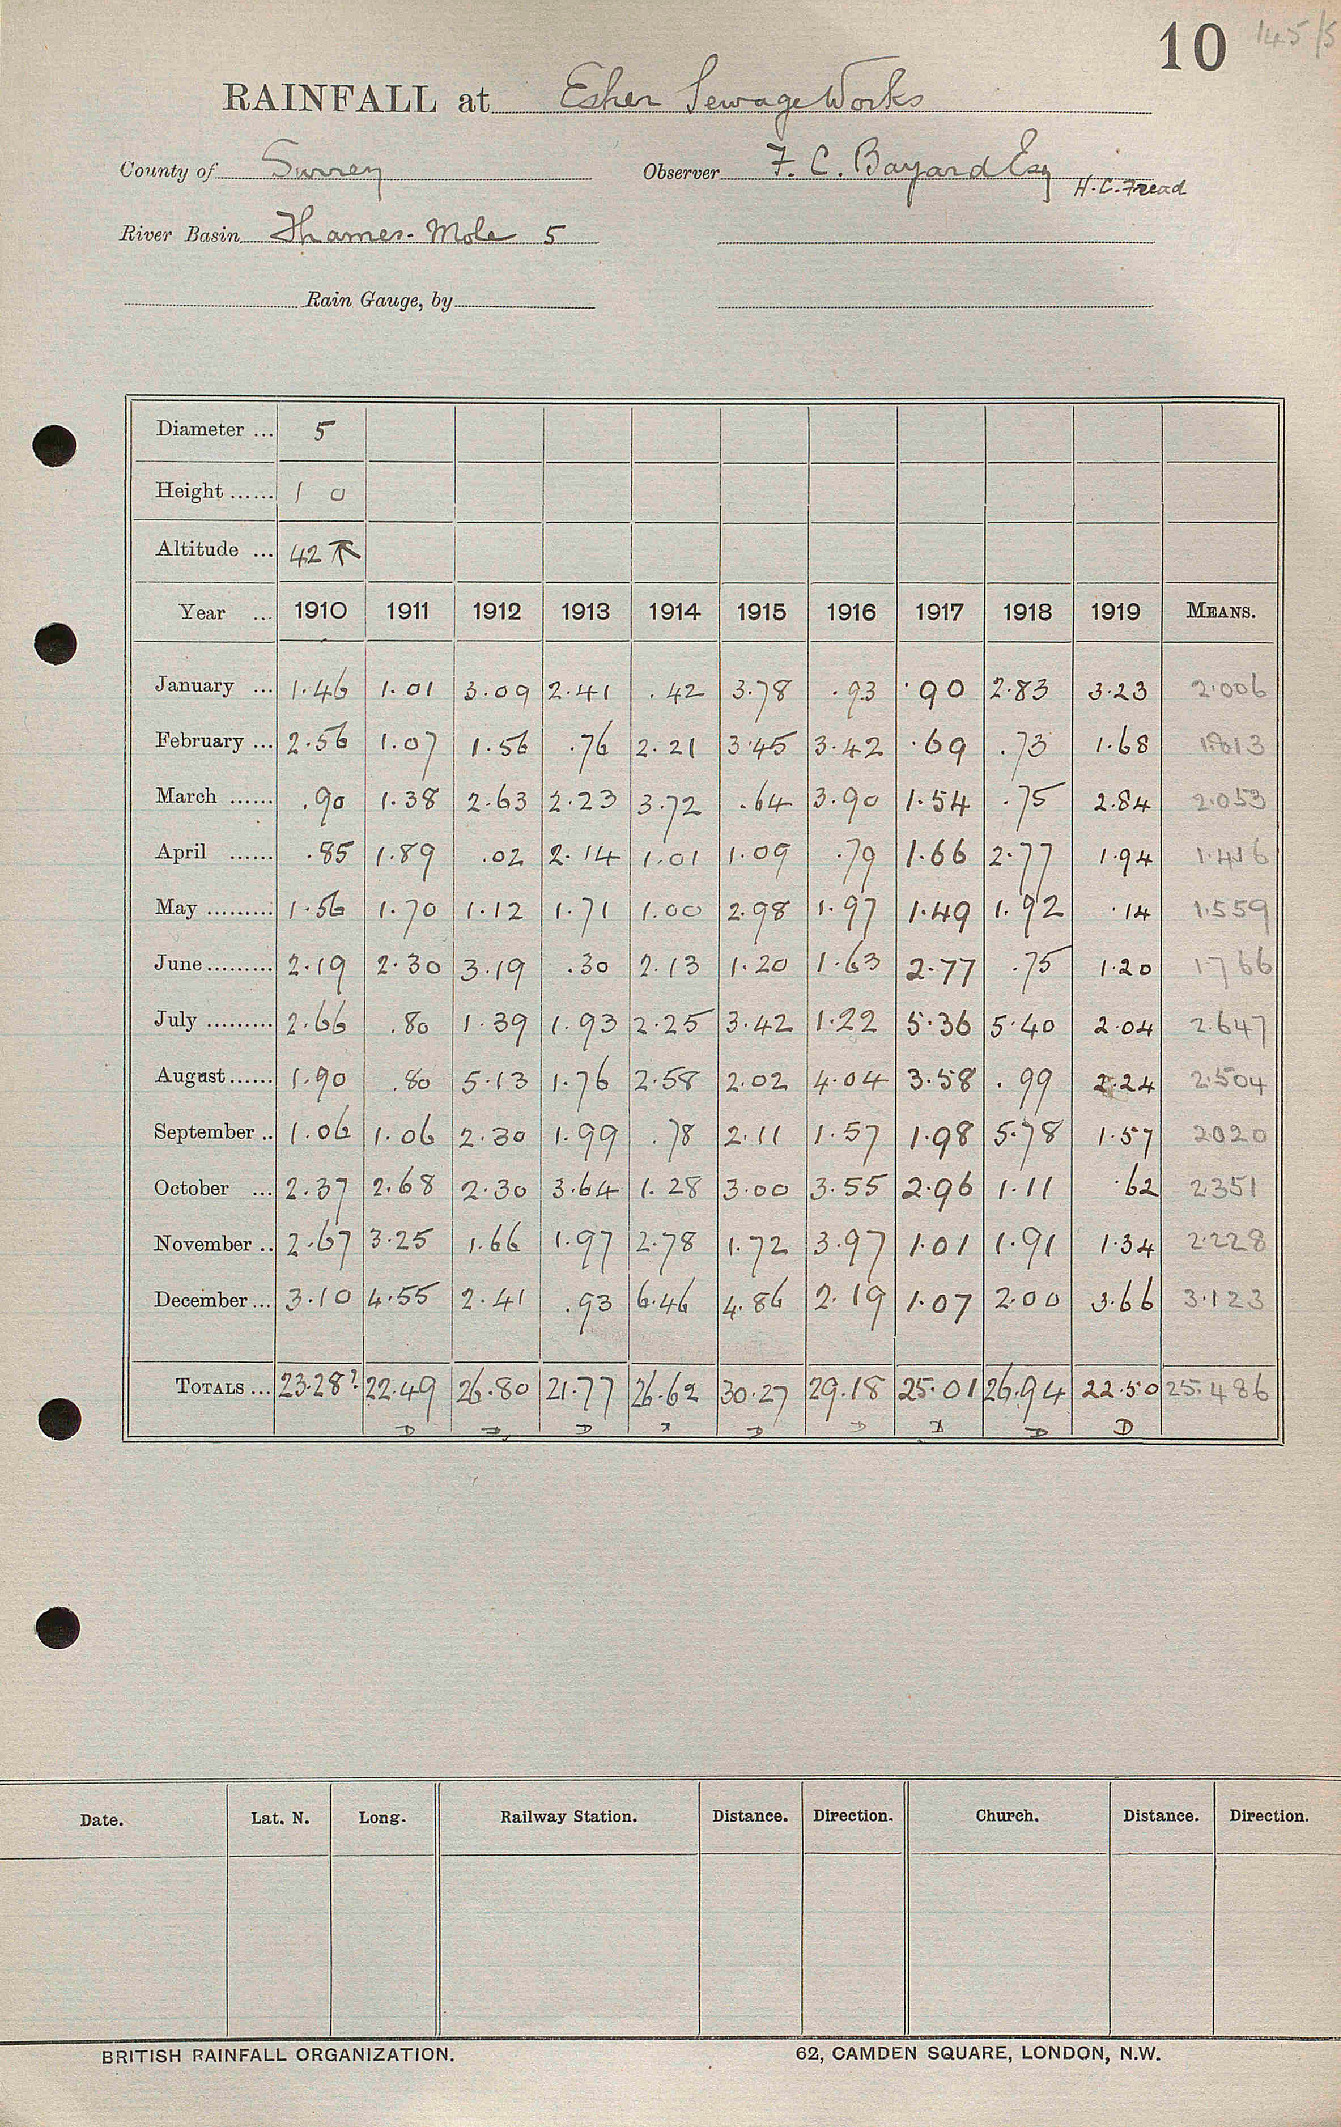 10 145/5
RAINFALL at Esher Sewage Works
County of Surrey Observer F. C. Bayard Esq
H. C. Fread
River Basin Thames. Mole 5
Rain Gauge, by
Diameter ... 5
Height ...... 1 0
Altitude ... 42
Year ... 1910 1911 1912 1913 1914 1915 1916 1917 1918 1919 MEANS.
January ... 1.46 1.01 3.09 2.41 .42 3.78 .93 .90 2.83 3.23 2.006
February ... 2.56 1.07 1.56 .76 2.21 3.45 3.42 .69 .73 1.68 1.813
March ...... .90 1.38 2.63 2.23 3.72 .64 3.90 1.54 .75 2.84 2.053
April ...... .85 1.89 .02 2.14 1.01 1.09 .79 1.66 2.77 1.94 1.416
May ......... 1.56 1.70 1.12 1.71 1.00 2.98 1.97 1.49 1.92 .14 1.559
June ......... 2.19 2.30 3.19 .30 2.13 1.20 1.63 2.77 .75 1.20 1766
July ......... 2.66 .80 1.39 1.93 2.25 3.42 1.22 5.36 5.40 2.04 2.647
August ...... 1.90 .80 5.13 1.76 2.58 2.02 4.04 3.58 .99 2.24 2.504
September .. 1.06 1.06 2.30 1.99 .78 2.11 1.57 1.98 5.78 1.57 2020
October ... 2.37 2.68 2.30 3.64 1.28 3.00 3.55 2.96 1.11 .62 2351
November .. 2.67 3.25 1.66 1.97 2.78 1.72 3.97 1.01 1.91 1.34 2.228
December ... 3.10 4.55 2.41 .93 6.46 4.86 2.19 1.07 2.00 3.66 3.123
TOTALS ... 23.28? 22.49 26.80 21.77 26.62 30.27 29.18 25.01 26.94 22.50 25.486
D D D D D D D D D
Date. Lat. N. Long. Railway Station. Distance. Direction. Church. Distance. Direction.
BRITISH RAINFALL ORGANIZATION. 62, CAMDEN SQUARE, LONDON, N.W.